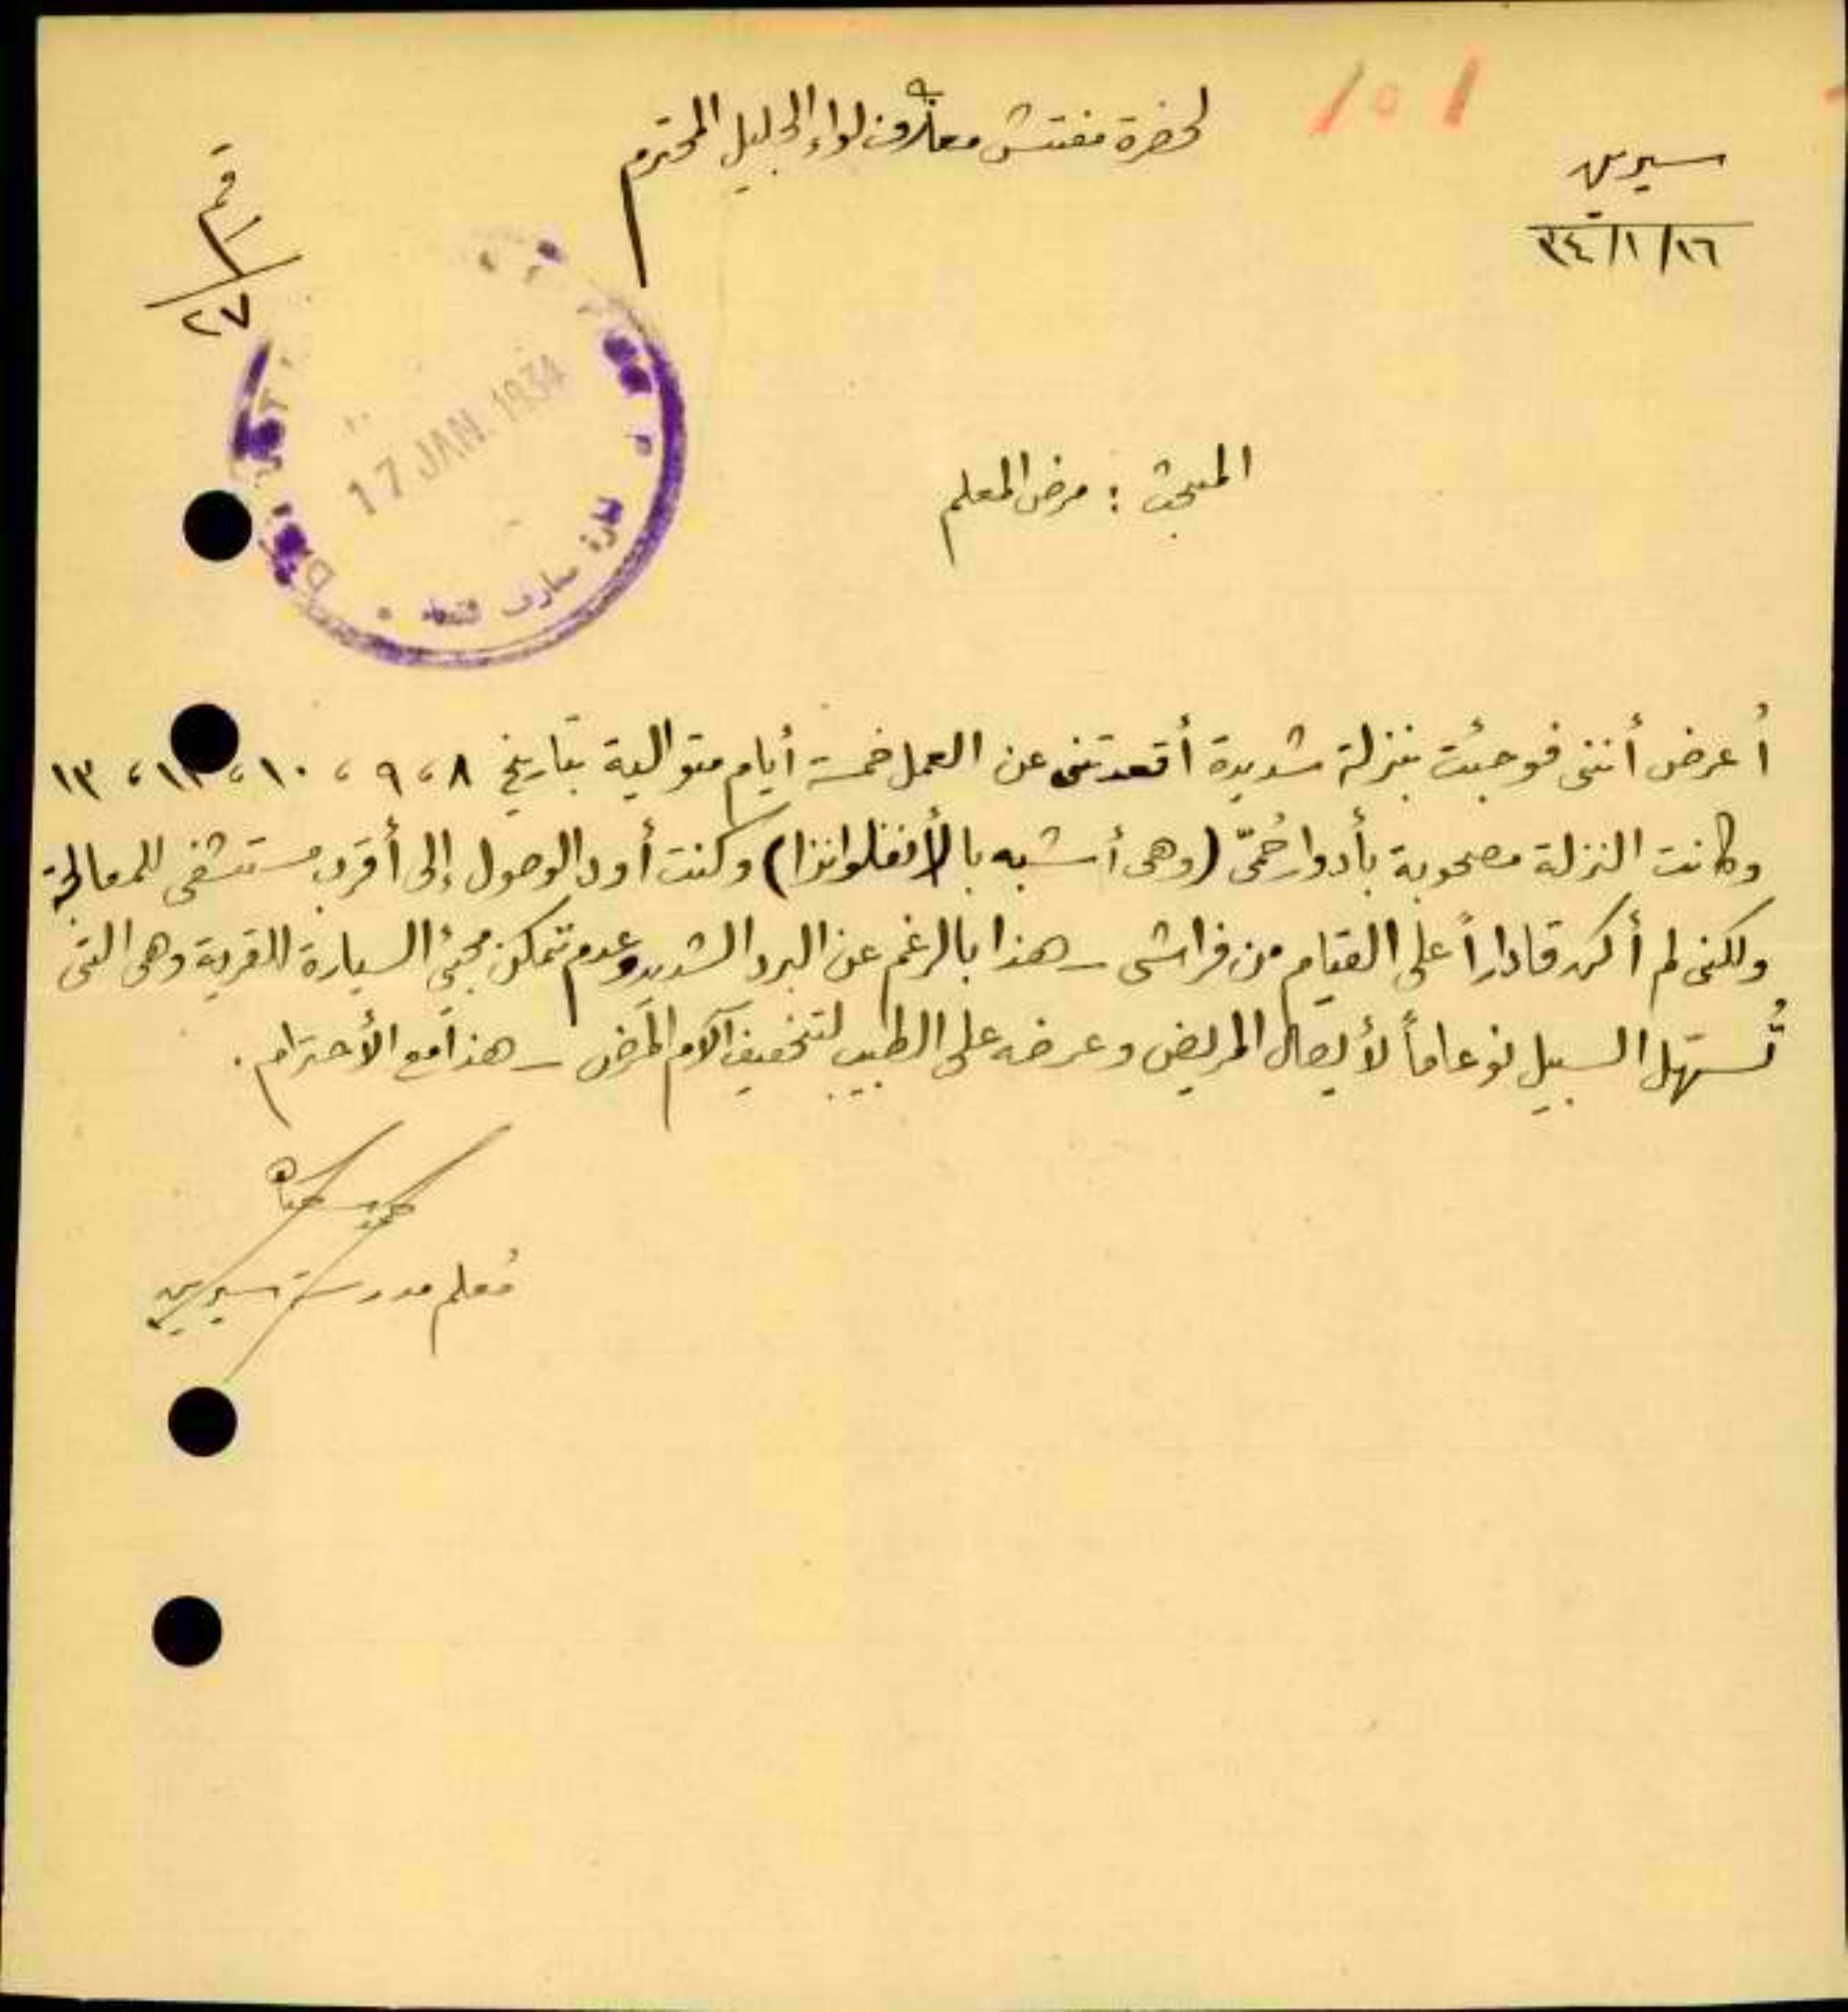 ١٥١
لحضرة مفتش معارف لواء الجليل المحترم
سيرين
٣٤/١/١٦
رقم
٢٧
17 JAN. 1934
المبحث : مرض المعلم
أعرض أنني فوجئت بنزلة شديدة أقعدتني عن العمل خمسة أيام متوالية بتاريخ ٨، ٩، ١٠، ١١، ١٣
وكانت النزلة مصحوبة بأدوار حُمّى (وهي أشبه بالأنفلوانزا) وكنت أود الوصول إلى أقرب مستشفى للمعالجة
ولكني لم أكن قاداراً على القيام من فراشي - هذا بالرغم عن البرد الشديد وعدم تمكن مجيئ السيارة للقرية وهي التي
تُسهّل السبيل نوعاماً لأيصال المريض وعرضه على الطبيب لتخفيف آلام المَرض - هذا مع الأحترام .
مُعلم مدرسة سيرين